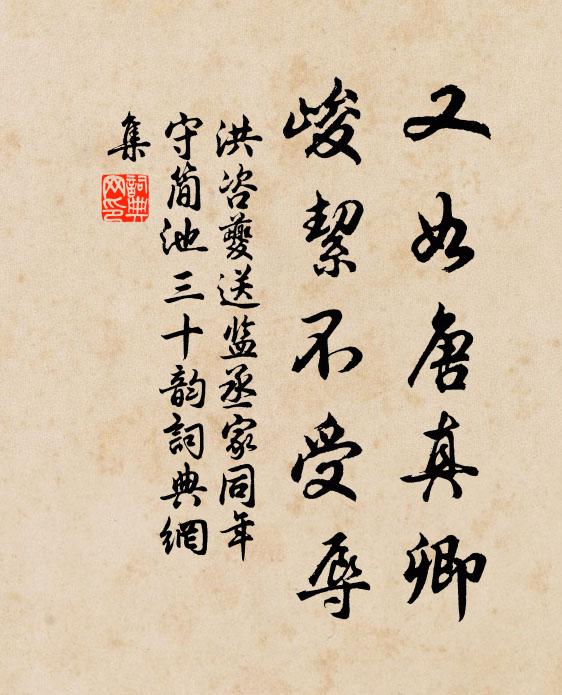 又如唐真卿
峻洁不受辱
洪咨夔送监丞家同年
守简池三十韵詞典網
集
詞典网印